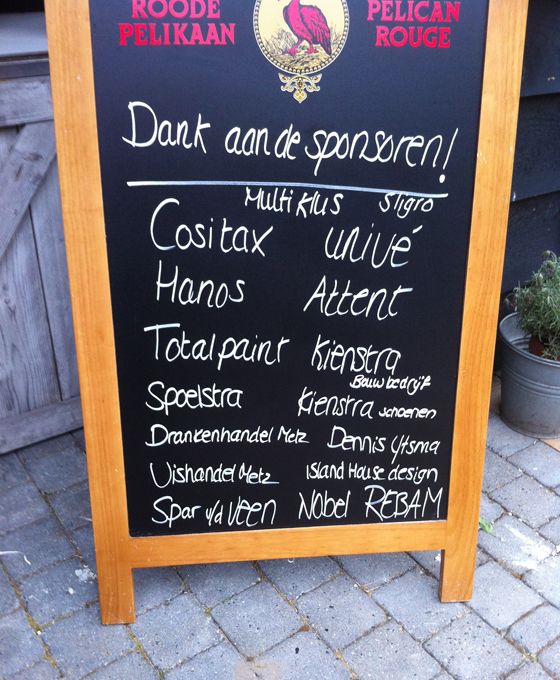 ROODE PELICAN
PELIKAAN ROUGE
Dank aan de sponsoren!
Multiklus Sligro
Cositax univé
Hanos Attent
Totalpaint Kienstra
Bouwbedrijf
Spoelstra Kienstra schoenen
Drankenhandel Metz Dennis IJtsma
Vishandel Metz Island House design
Spar v/d Veen Nobel REBAM